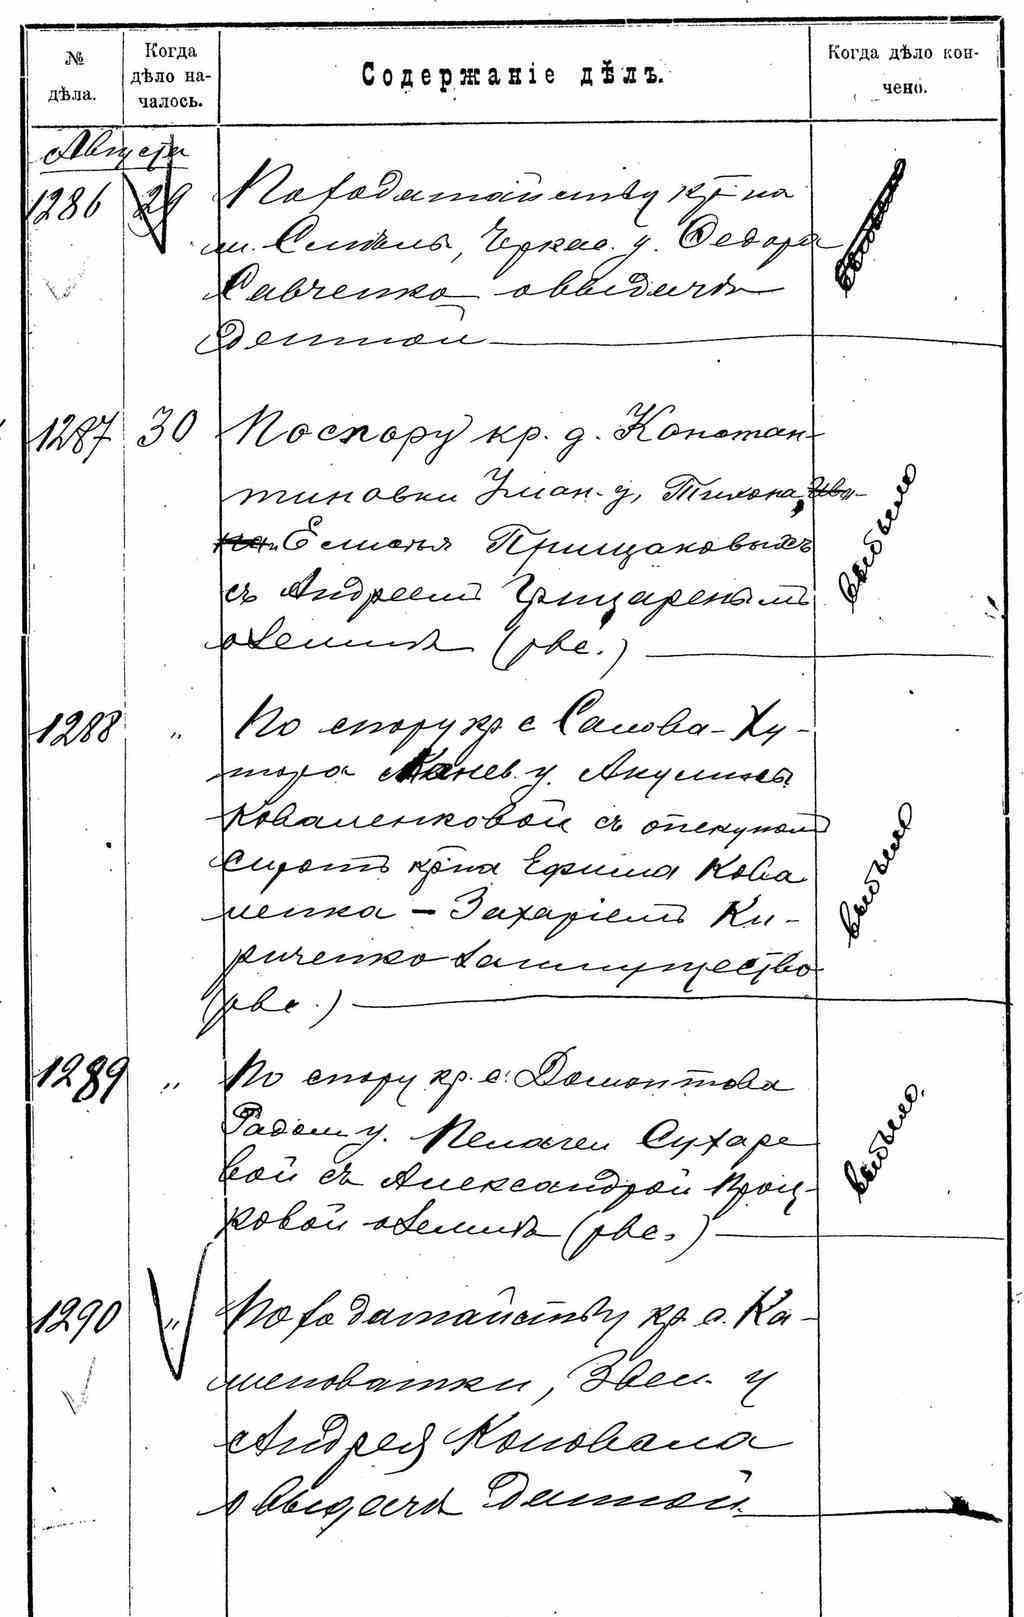 № дѣла.
Когда дѣло на-
чалось.
Содержаніе дѣлъ.
Когда дѣло кон-
чено.
Августа
1286 29 По ходатайству кр-на
м. Смѣлы, Черкас. у. Ѳедора
Савченко о выдачѣ
данной
1287 30 По спору кр. д. Констан-
тиновки Уман. у. Тихона, Ива-
на и Елисея Прищаковыхъ
съ Андреемъ Грицаренымъ
о землѣ (рвс.)
выбыло
1288 " По спору кр с Самова-Ху-
тора Канев. у. Акулины
Коваленковой съ опекуномъ
сиротъ кр-на Ефима Кова
ленка - Захаріемъ Ки-
риченко за имущество
(рвс.)
выбыло
1289 " По спору кр. с. Домонтова
Радом у. Пелагеи Сухаре
вой съ Александрой Кроц-
ковой о землѣ (рвс.)
выбыло.
1290 " По ходатайству кр. с. Ка-
меноватки, Звен. у
Андрея Коновала
о выдачѣ данной